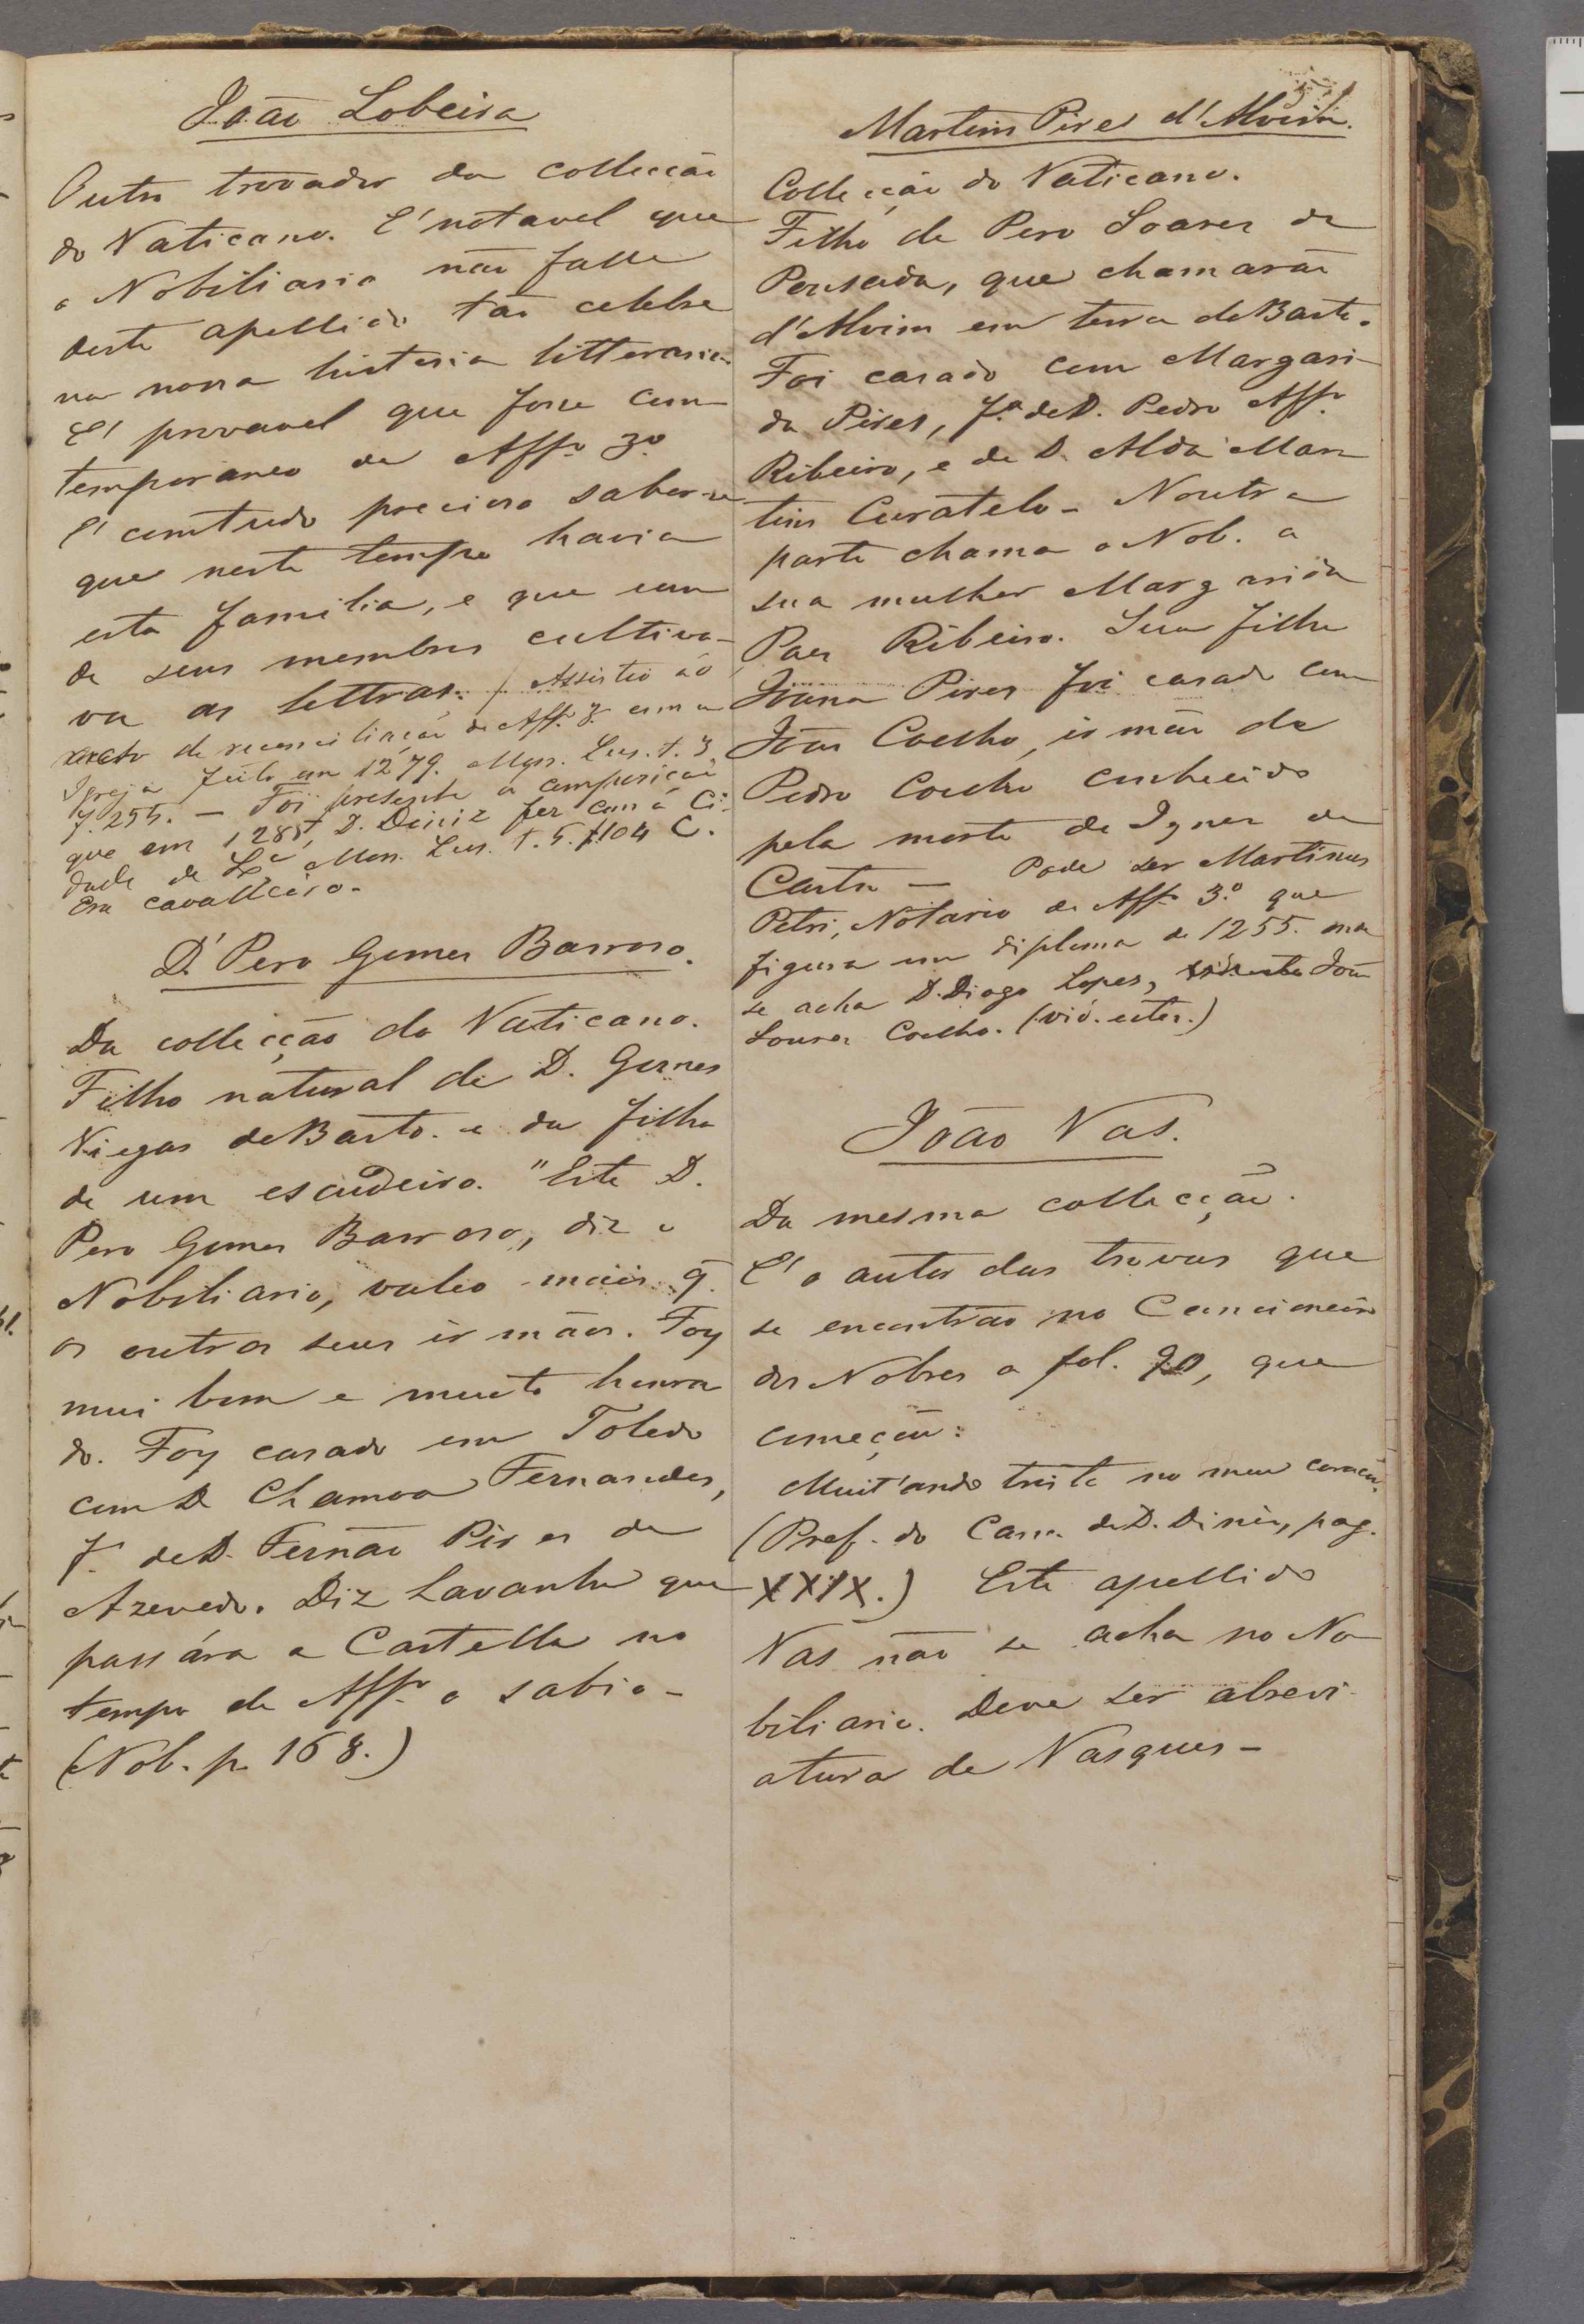 João Lobeira
Outro trovador da collecção
do Vaticano. É notavel que
o Nobiliario não falle
deste apellido tão celebre
na nossa historia litteraria.
É provavel que fosse con-
temporaneo de Aff.º 3.º
É comtudo precioso saber-se
que neste tempo havia
esta familia, e que um
de seus membros cultiva-
va as lettras. / Assistio ao
acto de reconciliação de Aff.º 3.º com a
Igreja feito em 1279. Mon. Lus. t. 3
f. 255. — Foi presente a composição
que em 1285, D. Diniz fez com a Ci-
dade de Lx.ª Mon. Lus. t. 5. f. 104 C.
Era cavalleiro.
D. Pero Gomes Barroso.
Da collecção do Vaticano.
Filho natural de D. Gomes
Viegas de Basto. e da filha
de um escudeiro. "Este D.
Pero Gomes Barroso, diz o
Nobiliario, valeo mais q̃.
os outros seus irmãos. Foy
mui bom e muito honra
do. Foy casado em Toledo
com D Chamoa Fernandes,
f. de D. Fernão Pires de
Azevedo. Diz Lavanha que
passára a Castella no
tempo de Aff.º o sabio -
(Nob. p. 168.)
Martim Pires d'Alvim.
Collecção do Vaticano.
Filho de Pero Soares de
Pousada, que chamarão
d'Alvim em terra de Basto.
Foi casado com Margari-
da Pires, f.ª de D. Pedro Aff.º
Ribeiro, e de D. Alda Mar
tins Curatelo - Noutra
parte chama o Nob. a
sua mulher Margarida
Paes Ribeiro. Sua filha
Joana Pires foi casada com
João Coelho, irmão de
Pedro Coelho conhecido
pela morte de Ignez de
Castro — Pode ser Martinus
Petri, Notario de Aff.º 3.º que
figura em diploma de 1255. ona
se acha D. Diogo Lopes, João
Soares Coelho. (vid. estes.)
João Vas.
Da mesma collecção.
É o autor das trovas que
se encontrão no Cancioneiro
dos Nobres a fol. 90, que
começão:
Muit'ando triste no meu coraçon.
(Pref. do Canc. de D. Diniz, pag.
XXIX.) Este apellido
Vas não se acha no No
biliario. Deve ser abrevi-
atura de Vasques -